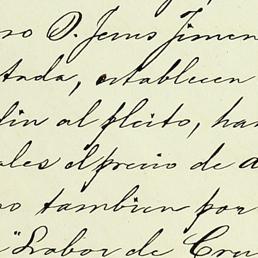 ro D. Jesus Jimen
tada, establecen
fin al pleito, han
ales el precio de a
no tambien por
"Labor de Cru